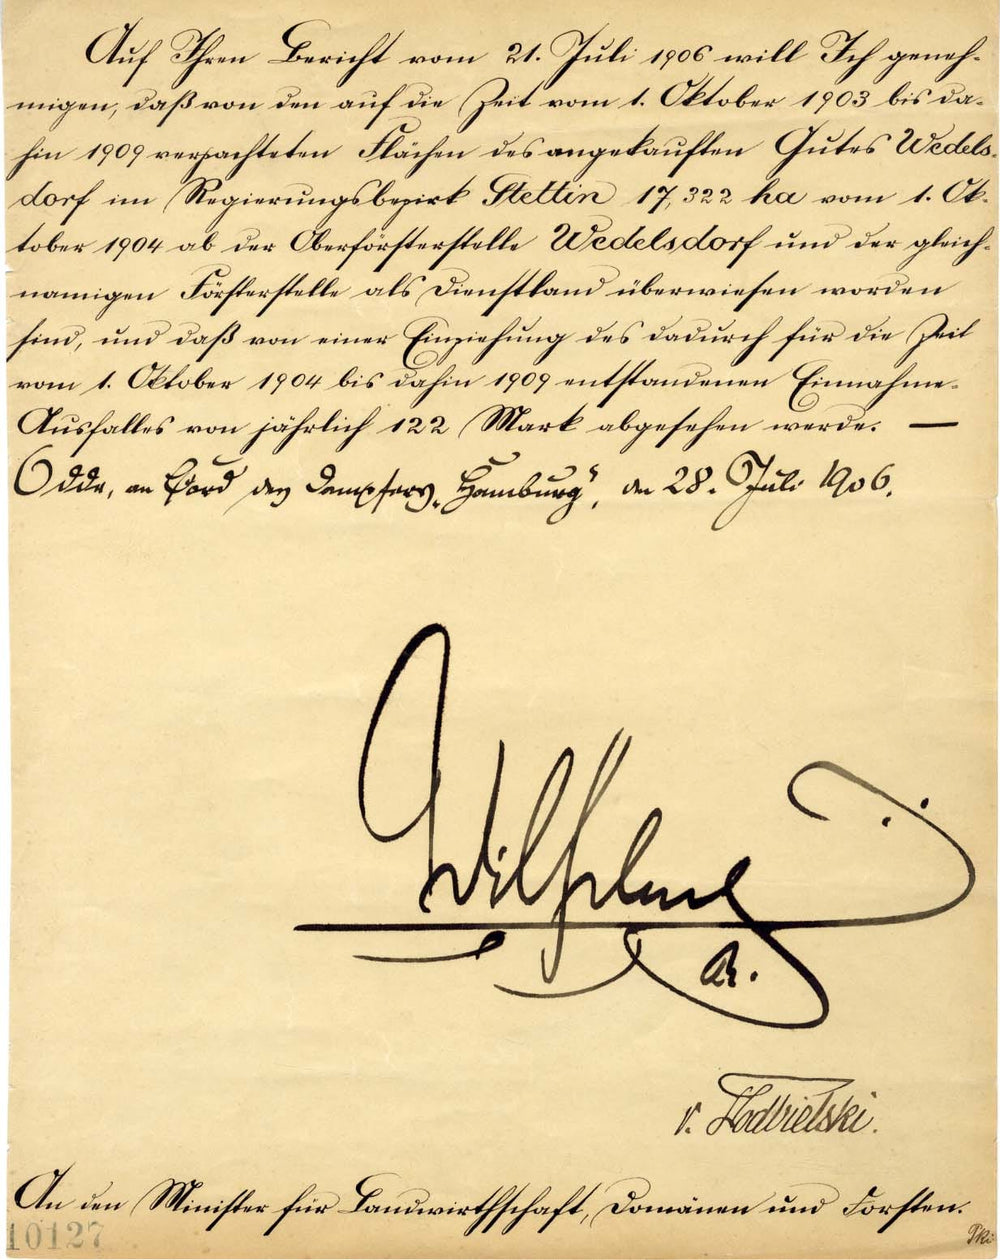 Auf Ihren Bericht vom 21. Juli 1906 will Ich geneh-
migen, daß von den auf die Zeit vom 1. Oktober 1903 bis da-
hin 1909 verpachteten Flächen des angekauften Gutes Wedels-
dorf im Regierungsbezirk Stettin 17,322 ha vom 1. Ok-
tober 1904 ab der Oberförsterstelle Wedelsdorf und der gleich-
namigen Försterstelle als Dienstland überwiesen worden
sind, und daß von einer Einziehung des dadurch für die Zeit
vom 1. Oktober 1904 bis dahin 1909 entstandenen Einnahme-
Ausfalles von jährlich 122 Mark abgesehen werde. —
Odde, an Bord des Dampfers „Hamburg", den 28. Juli 1906.
Wilhelm
R.
v. Podbielski.
An den Minister für Landwirthschaft, Domänen und Forsten.
10127